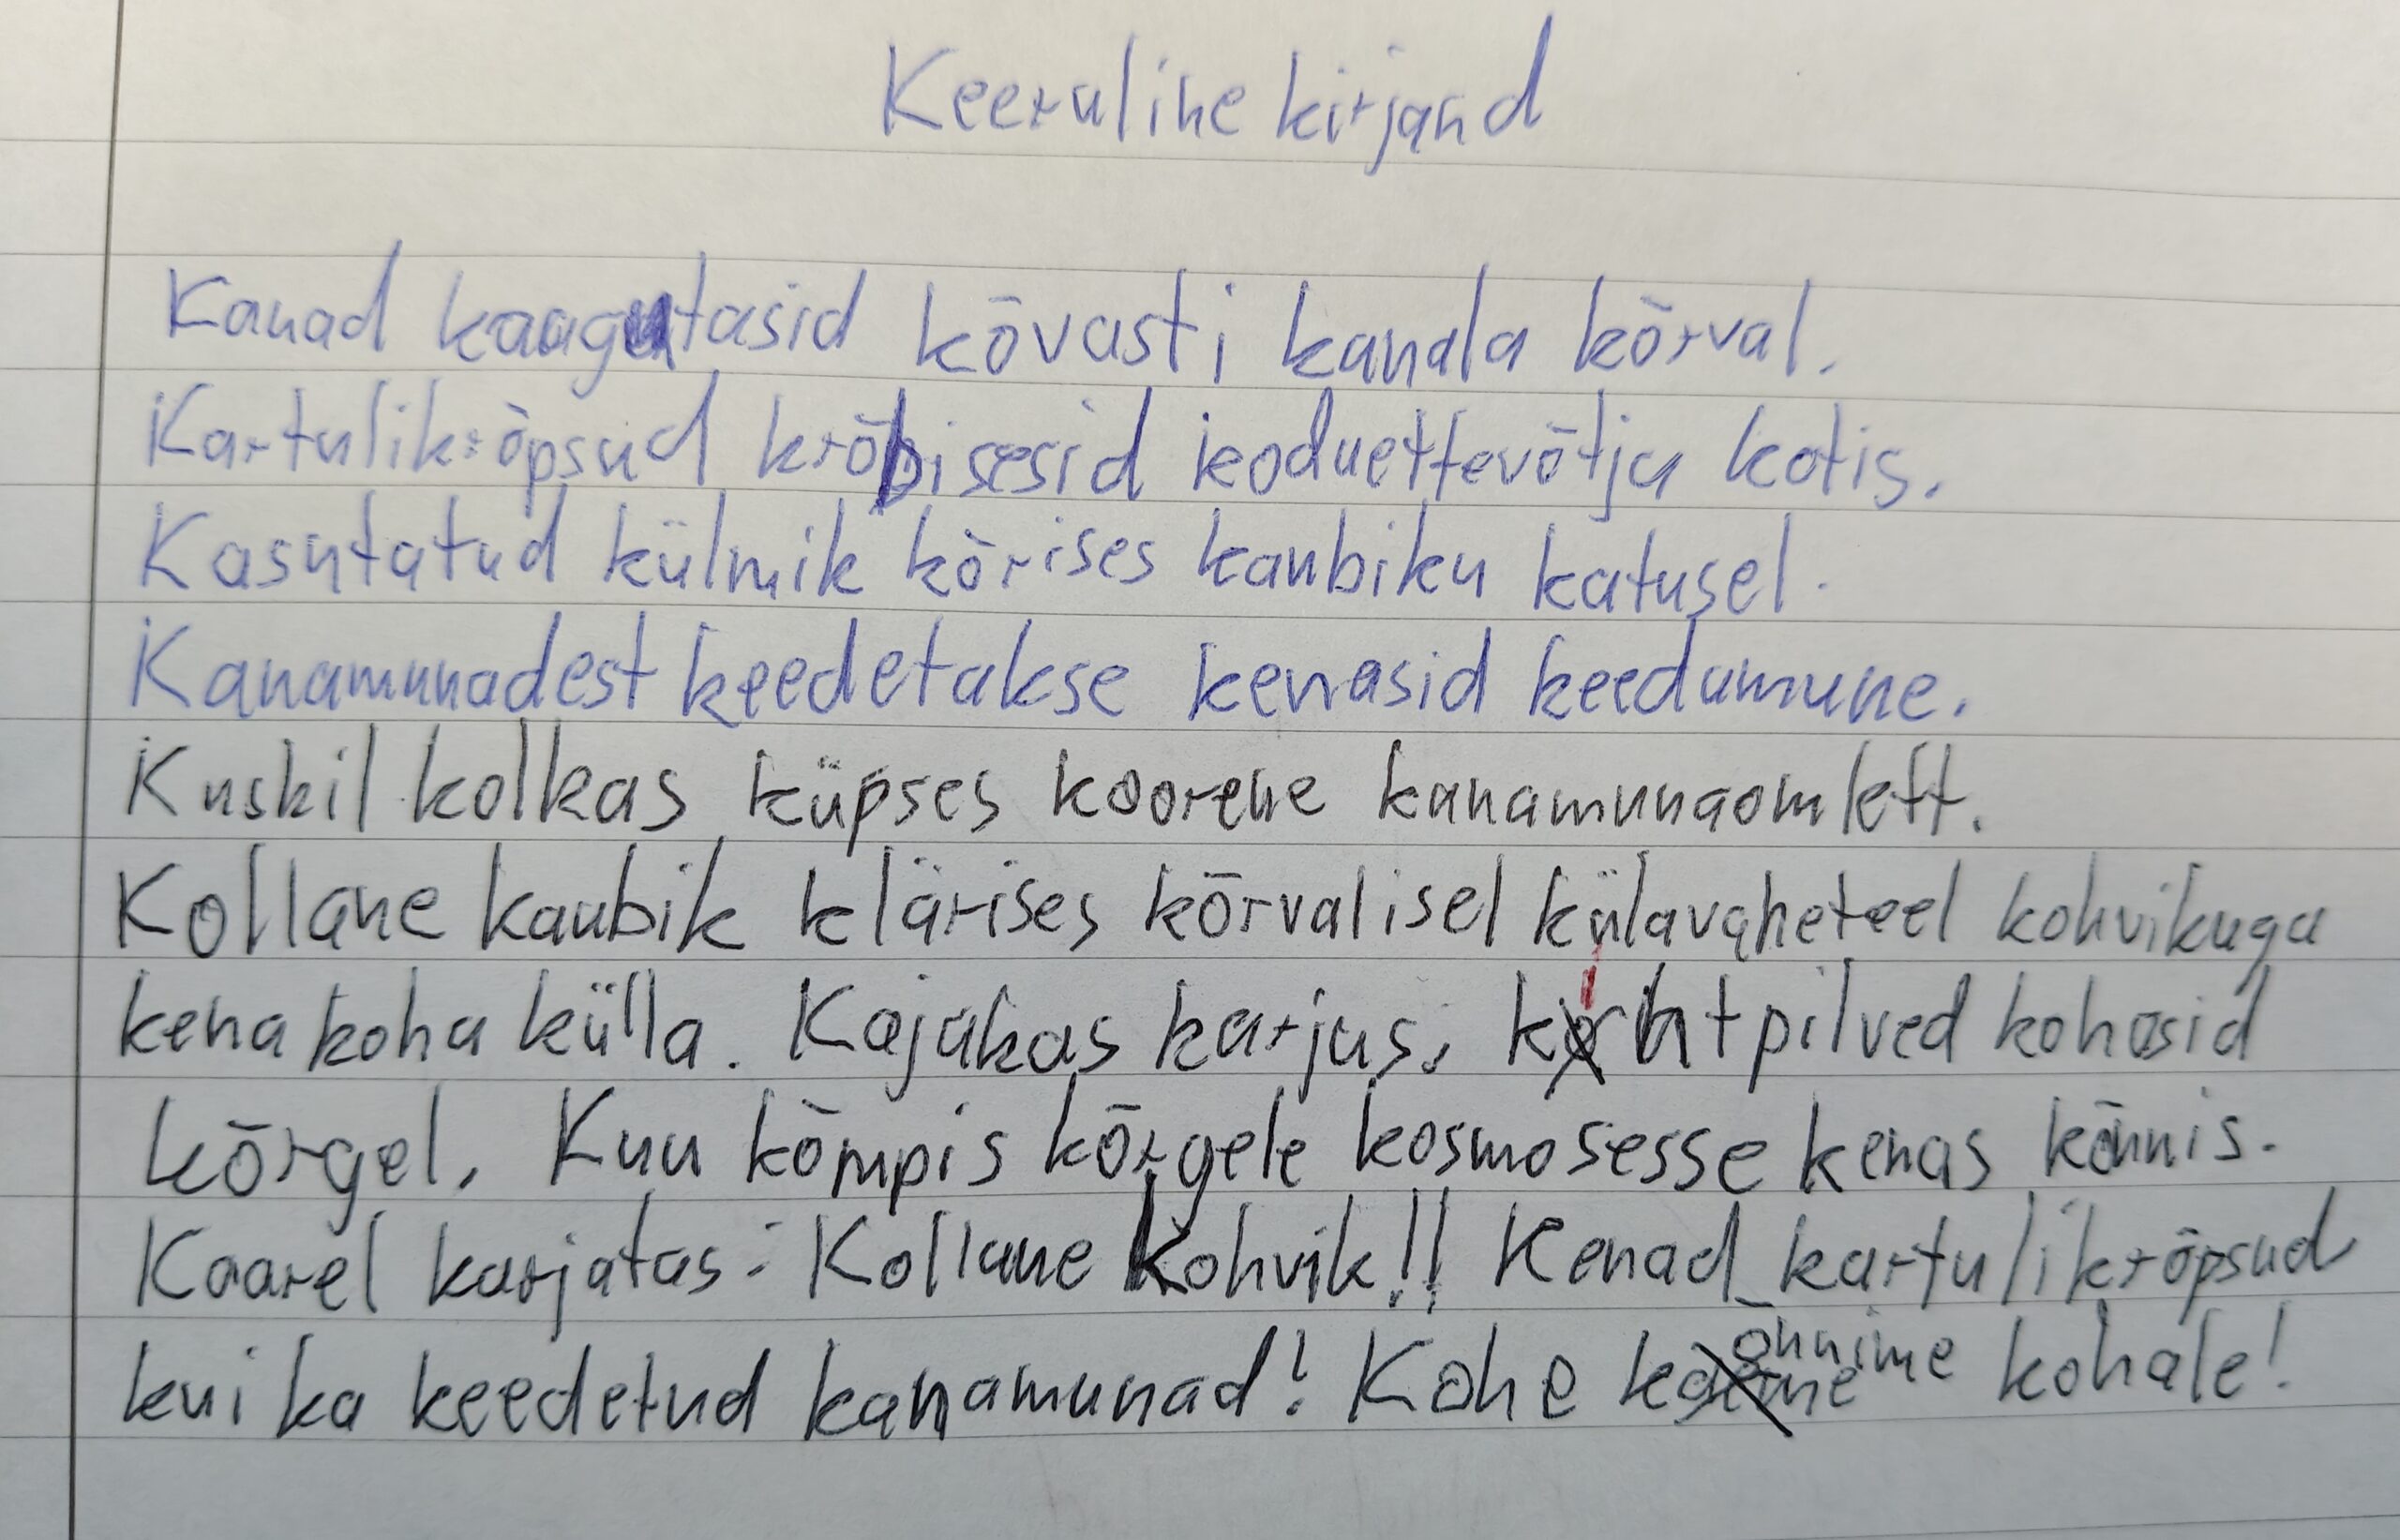 Keeruline kirjand
Kanad kaagutasid kõvasti kanala kõrval.
Kartulikrõpsud krõbisesid koduettevõtja kotis.
Kasutatud külmik kõrises kaubiku katusel.
Kanamunadest keedetakse kenasid keedumune.
Kuskil kolkas küpses koorene kanamunaomlett.
Kollane kaubik klärises kõrvalisel külavaheteel kohvikuga
kena koha külla. Kajakas karjus, kihtpilved kohasid
kõrgel. Kuu kõmpis kõrgele kosmosesse kenas kõnnis.
Kaarel karjatas: Kollane kohvik!! Kenad kartulikrõpsud
kui ka keedetud kanamunad! Kohe kõnnime kohale!